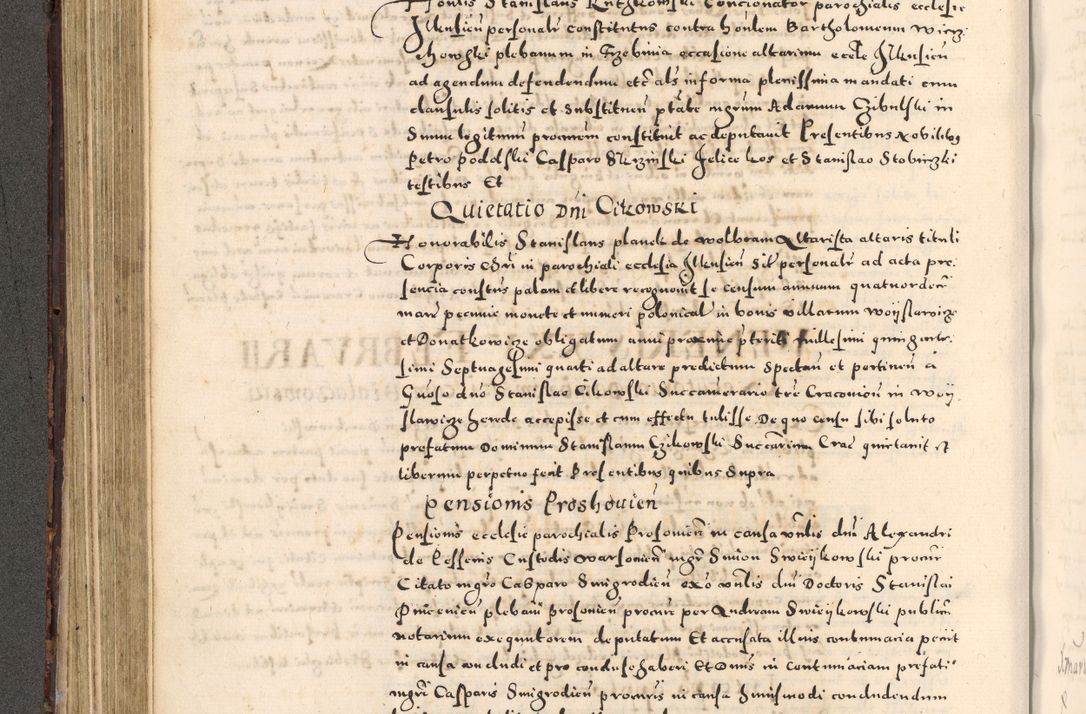 Honlis Stanislaus Kuthkowski Concionator parochialis ecclesie
Ilkusien personalr constitutus contra honlem Bartholomeum
plebanum in Trzebinia occasione altarium eccle Ilkusien
ad agendum defendendum etc als in forma plenissima mandati cum
clausulis solitis et substituen ptate mgrum Adamum Czibulski in
Suum legitimum procurem constituit ac deputavit Presentibus Nobilibus
Petro Poddlski Casparo Skrzinski Felice kos et Stanislao
testibus Et
Quietatio Dni Cikowski
Honorabilis Stanislaus planek de wolbram Altarista altaris tituli
Corporis Chri in parochiali ecclesia Ilkusien Sit personalr ad acta pre
sencia constus palam et libere recognovit se censum annuum quatuordecim
marc pecunie monete et numeri polonicalr in bonis villarum Woyslawicze
et Donatkowicze obligatum anni proxime pteriti millesimi quingente
simi Septuagesimi quarti ad altare predictum Spectan et pertinen a
Gnoso dno Stanislao Cikowski Succamerario tre Cracovien in Woy
slawicze herede accepisse et cum effectu tulisse De quo censu sibi soluto
prefatum Dominum Stanislaum Czikowski Succarium Crac quietavit et
liberum perpetuo fecit Presentibus quibus Supra
Pensionis Proshovien
Pensionis ecclesie parochialis Prosovien in causa vnlis dni Alexandri
de Pessenis Custodis warsovien mgr Simon Swieykowski procur
Citato mgro Casparo Smigrodien ex o vnlis dni Doctoris Stanislai
plebani Prosovien procure per Andream Swieykowski publicum
notarium exequutorem deputatum Et accusata illius contumacia petiit
in causa concludi et pro concluso haberi Et Dnus in contumaciam prefati
mgri Casparis Smigrodien procuris in causa huiusmodi concludendum